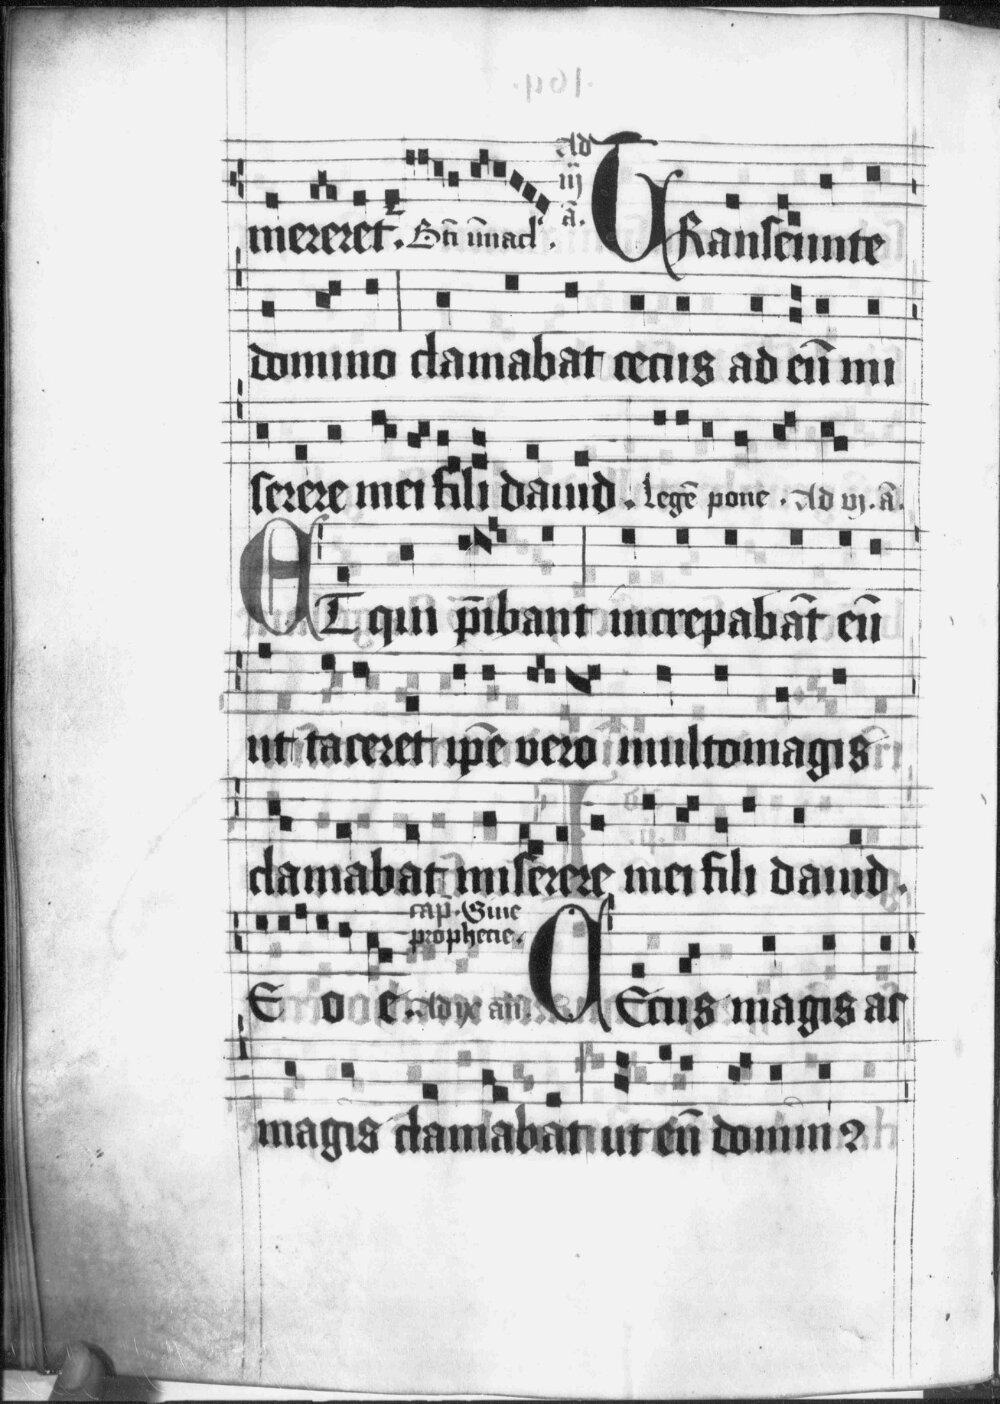 Ad
iij
ā.
mereret. TRanseunte
domino clamabat cecus ad eū mi
serere mei fili dauid. Legē pone. Ad vj. ā.
ET qui p̄ibant increpabāt eū
ut taceret ip̄e vero multomagis
clamabat miserere mei fili dauid.
cap̄. Siue
prophecie.
E o e. Ad ix an̄. CEcus magis ac
magis clamabat ut eū domin?